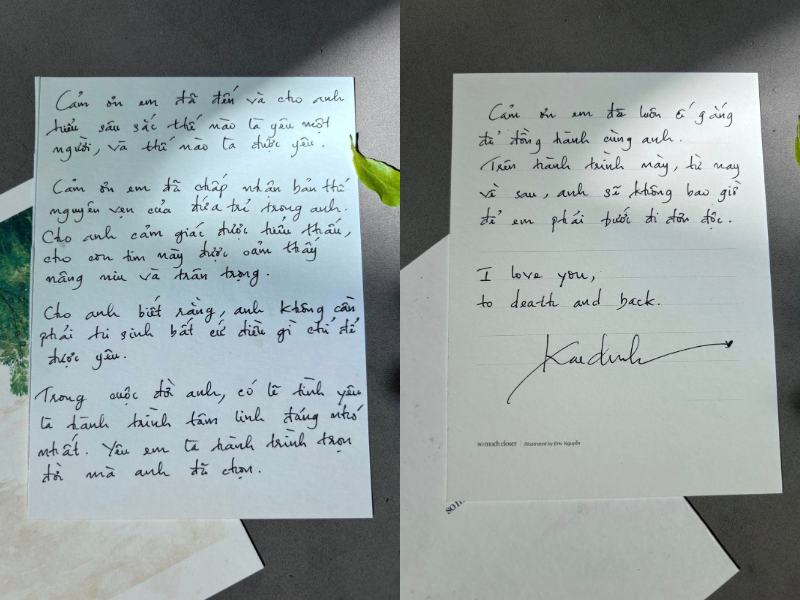 Cảm ơn em đã đến và cho anh
hiểu sâu sắc thế nào là yêu một
người, và thế nào là được yêu.
Cảm ơn em đã chấp nhận bản thể
nguyên vẹn của đứa trẻ trong anh.
Cho anh cảm giác được hiểu thấu,
cho con tim này được cảm thấy
nâng niu và trân trọng.
Cho anh biết rằng, anh không cần
phải hi sinh bất cứ điều gì chỉ để
được yêu.
Trong cuộc đời anh, có lẽ tình yêu
là hành trình tâm linh đáng nhớ
nhất. Yêu em là hành trình trọn
đời mà anh đã chọn.
Cảm ơn em đã luôn cố gắng
để đồng hành cùng anh.
Trên hành trình này, từ nay
về sau, anh sẽ không bao giờ
để em phải bước đi đơn độc.
I love you,
to death and back.
Kaedinh
so much closer | Illustrated by Eric Nguyễn
so m